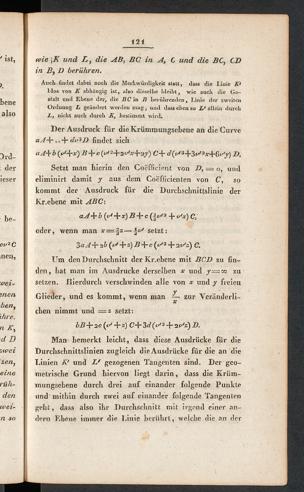 121
wie K und L, die AB, BC in A, C und die BC, CD
in B, D berühren.
Auch findet dabei noch die Merkwürdigkeit statt, dass die Linie K'
blos von K abhängig ist, also dieselbe bleibt, wie auch die Ge-
stalt und Ebene der, die BC in B berührenden, Linie der zweiten
Ordnung L geändert werden mag; und dass eben so L' allein durch
L, nicht auch durch K, bestimmt wird.
Der Ausdruck für die Krümmungsebene an die Curve
aA+..+dv³D findet sich
aA+b(v+x)B+c(v²+2vx+2y)C+d(v³+3v²x+6vy)D.
Setzt man hierin den Coëfficient von D, = 0, und
eliminirt damit y aus dem Coëfficienten von C, so
kommt der Ausdruck für die Durchschnittslinie der
Kr.ebene mit ABC:
aA+b(v+x)B+c(⅔v²+vx)C,
oder, wenn man
setzt:
3aA+2b(v+z)B+c(v²+2vz)C.
Um den Durchschnitt der Kr.ebene mit BCD zu fin-
den, hat man im Ausdrucke derselben x und y=∞ zu
setzen. Hierdurch verschwinden alle von x und y freien
Glieder, und es kommt, wenn man y/x zur Veränderli-
chen nimmt und = z setzt:
bB+2c(v+z)C+3d(v²+2vz)D.
Man bemerkt leicht, dass diese Ausdrücke für die
Durchschnittslinien zugleich die Ausdrücke für die an die
Linien K' und L' gezogenen Tangenten sind. Der geo-
metrische Grund hiervon liegt darin, dass die Krüm-
mungsebene durch drei auf einander folgende Punkte
und mithin durch zwei auf einander folgende Tangenten
geht, dass also ihr Durchschnitt mit irgend einer an-
dern Ebene immer die Linie berührt, welche die an der